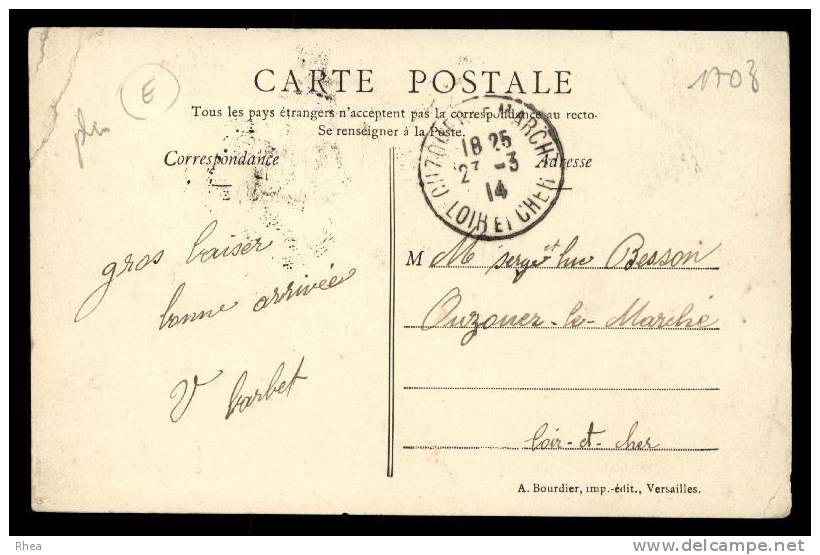 1703
E
plis
CARTE POSTALE
Tous les pays étrangers n'acceptent pas la correspondance au recto-
Se renseigner à la Poste.
Correspondance
Adresse
OUZOUER-LE-MARCHÉ
18 25
27 -3
14
LOIR ET CHER
gros baiser
bonne arrivée
V barbet
M M serge et luc Besson
Ouzouer-le-Marché
loir-et-cher
A. Bourdier, imp.-édit., Versailles.
Rhea
www.delcampe.net